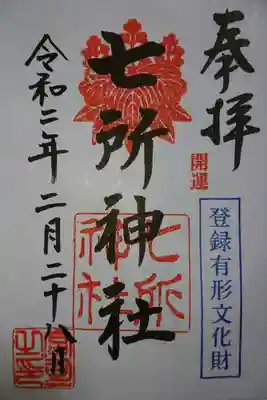 奉拝
開運
登録有形文化財
七所神社
七所
神社
令和二年二月二十八日